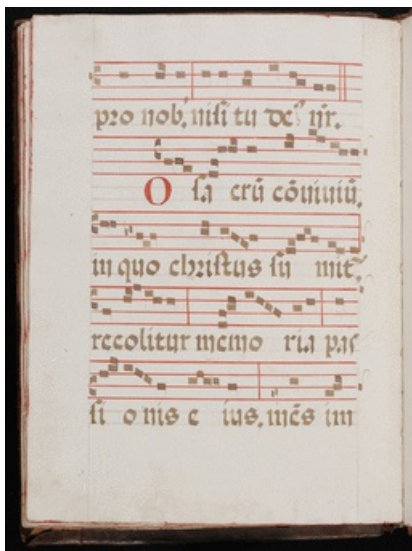 pro nob', nisi tu de' nr̄.
O sa crū cōuiuiū,
in quo christus su mit̄
recolitur memo ria pas
si o nis e ius, mēs im